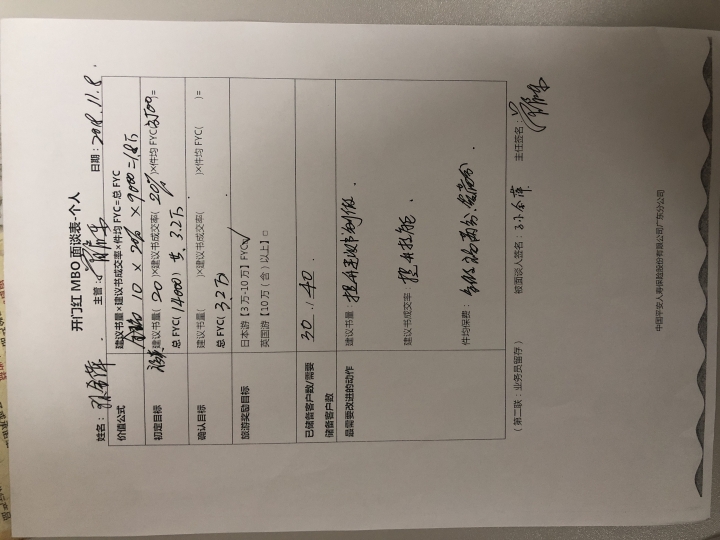 开门红 MBO 面谈表-个人
姓名： 主管： 日期：2018.11.8.
价值公式 建议书量×建议书成交率×件均 FYC=总 FYC
10 × 20% × 9000 = 1.8万
初定目标 建议书量( 20 )×建议书成交率( 20% )×件均 FYC(3500)=
总 FYC( 14000 ) 共 3.2万
确认目标 建议书量( )×建议书成交率( )×件均 FYC( )=
总 FYC( 3.2万 )
旅游奖励目标 日本游【3 万-10 万】FYC√
英国游【10 万（含）以上】□
已储备客户数/需要
储备客户数 30 / 40.
最需要改进的动作 建议书量：提升建议书制作.
建议书成交率：提升技能
件均保费：
（第二联：业务员留存） 被面谈人签名： 主任签名：
中国平安人寿保险股份有限公司广东分公司